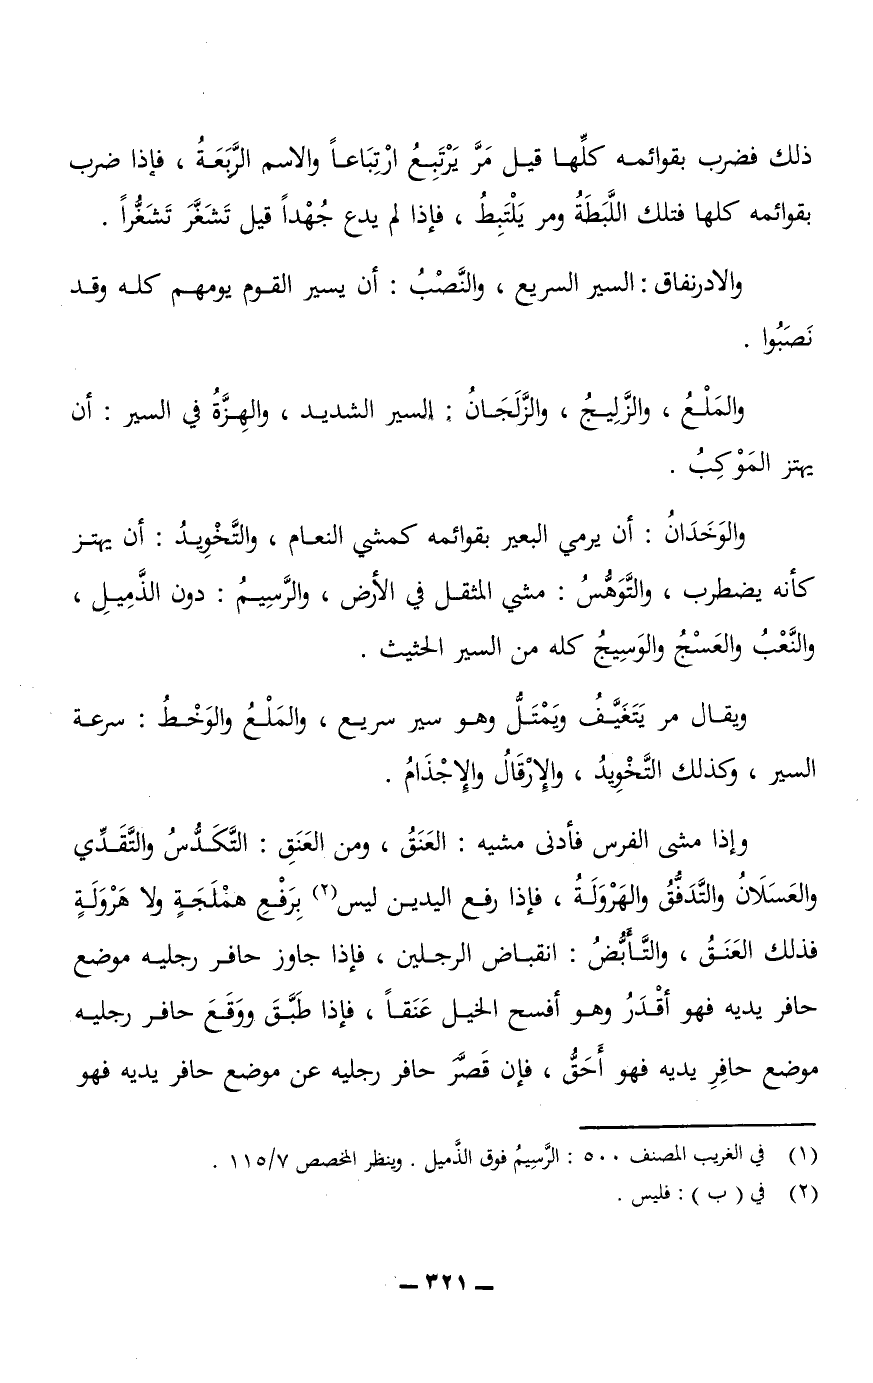 ذلك فضرب بقوائمه كلِّها قيل مَرَّ يَرْتَبِعُ ارْتِبَاعاً والاسم الرَّبَعَةُ ، فإذا ضرب
بقوائمه كلها فتلك اللَّبَطَةُ ومر يَلْتَبِطُ ، فإذا لم يدع جُهْداً قيل تَشَغَّرَ تَشَغُّراً .
والادرنفاق : السير السريع ، والنَّصْبُ : أن يسير القوم يومهم كله وقد
نَصَبُوا .
والمَلْعُ ، والزَّلِيجُ ، والزَّلَجَانُ : السير الشديد ، والهِزَّةُ في السير : أن
يهتز المَوْكِبُ .
والوَخَدَانُ : أن يرمي البعير بقوائمه كمشي النعام ، والتَّخْوِيدُ : أن يهتز
كأنه يضطرب ، والتَّوَهُّسُ : مشي المثقل في الأرض ، والرَّسِيمُ : دون الذَّمِيلِ ،
والنَّعْبُ والعَسْجُ والوَسِيجُ كله من السير الحثيث .
ويقال مر يَتَغَيَّفُ ويَمْتَلُّ وهو سير سريع ، والمَلْعُ والوَخْطُ : سرعة
السير ، وكذلك التَّخْوِيدُ ، والإِرْقَالُ والإِجْذَامُ .
وإذا مشى الفرس فأدنى مشيه : العَنَقُ ، ومن العَنَقِ : التَّكَدُّسُ والتَّقَدِّي
والعَسَلَانُ والتَّدَفُّقُ والهَرْوَلَةُ ، فإذا رفع اليدين ليس(٢) بِرَفْعِ هَمْلَجَةٍ ولا هَرْوَلَةٍ
فذلك العَنَقُ ، والتَّأَبُّضُ : انقباض الرجلين ، فإذا جاوز حافر رجليه موضع
حافر يديه فهو أَقْدَرُ وهو أفسح الخيل عَنَقاً ، فإذا طَبَّقَ ووَقَعَ حافر رجليه
موضع حافِرِ يديه فهو أَحَقُّ ، فإن قَصَّرَ حافر رجليه عن موضع حافر يديه فهو
(١) في الغريب المصنف ٥٠٠ : الرَّسِيمُ فوق الذَّميل . وينظر المخصص ١١٥/٧ .
(٢) في ( ب ) : فليس .
— ٣٢١ —